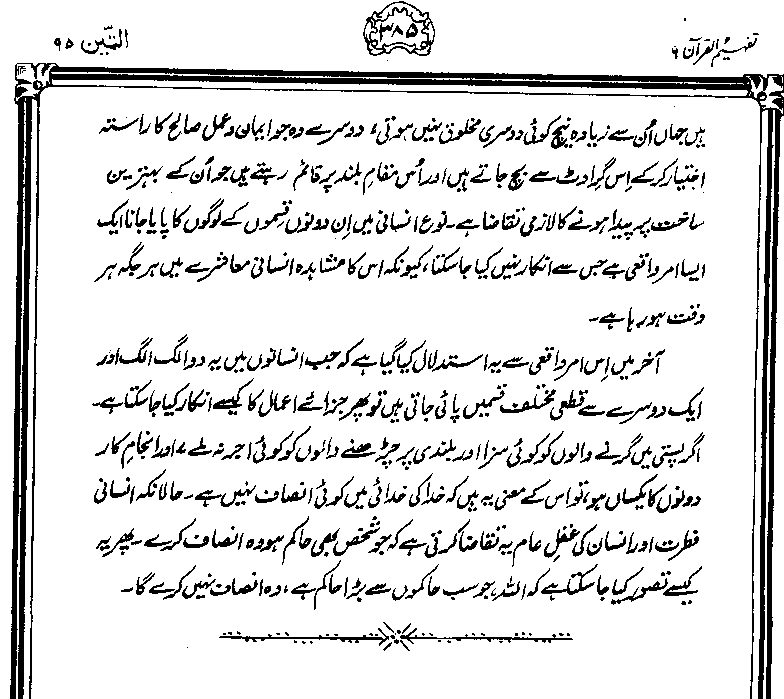 تفہیم القرآن ۶
۳۸۵
التّین ۹۵
ہیں جہاں اُن سے زیادہ نیچ کوئی دوسری مخلوق نہیں ہوتی، دوسرے وہ جو ایمان و عمل صالح کا راستہ
اختیار کر کے اِس گراوٹ سے بچ جاتے ہیں اور اُس مقامِ بلند پر قائم رہتے ہیں جو اُن کے بہترین
ساخت پر پیدا ہونے کا لازمی تقاضا ہے۔ نوع انسانی میں اِن دونوں قِسموں کے لوگوں کا پایا جانا ایک
ایسا امر واقعی ہے جس سے انکار نہیں کیا جا سکتا، کیونکہ اس کا مشاہدہ انسانی معاشرے میں ہر جگہ ہر
وقت ہو رہا ہے۔
آخر میں اِس امر واقعی سے یہ استدلال کیا گیا ہے کہ جب انسانوں میں یہ دو الگ الگ اور
ایک دوسرے سے قطعی مختلف قسمیں پائی جاتی ہیں تو پھر جزائے اعمال کا کیسے انکار کیا جا سکتا ہے۔
اگر پستی میں گرنے والوں کو کوئی سزا اور بلندی پر چڑھنے والوں کو کوئی اجر نہ ملے، اور انجامِ کار
دونوں کا یکساں ہو، تو اس کے معنی یہ ہیں کہ خدا کی خدائی میں کوئی انصاف نہیں ہے۔ حالانکہ انسانی
فطرت اور انسان کی عقلِ عام یہ تقاضا کرتی ہے کہ جو شخص بھی حاکم ہو وہ انصاف کرے۔ پھر یہ
کیسے تصور کیا جا سکتا ہے کہ اللہ، جو سب حاکموں سے بڑا حاکم ہے، وہ انصاف نہیں کرے گا۔